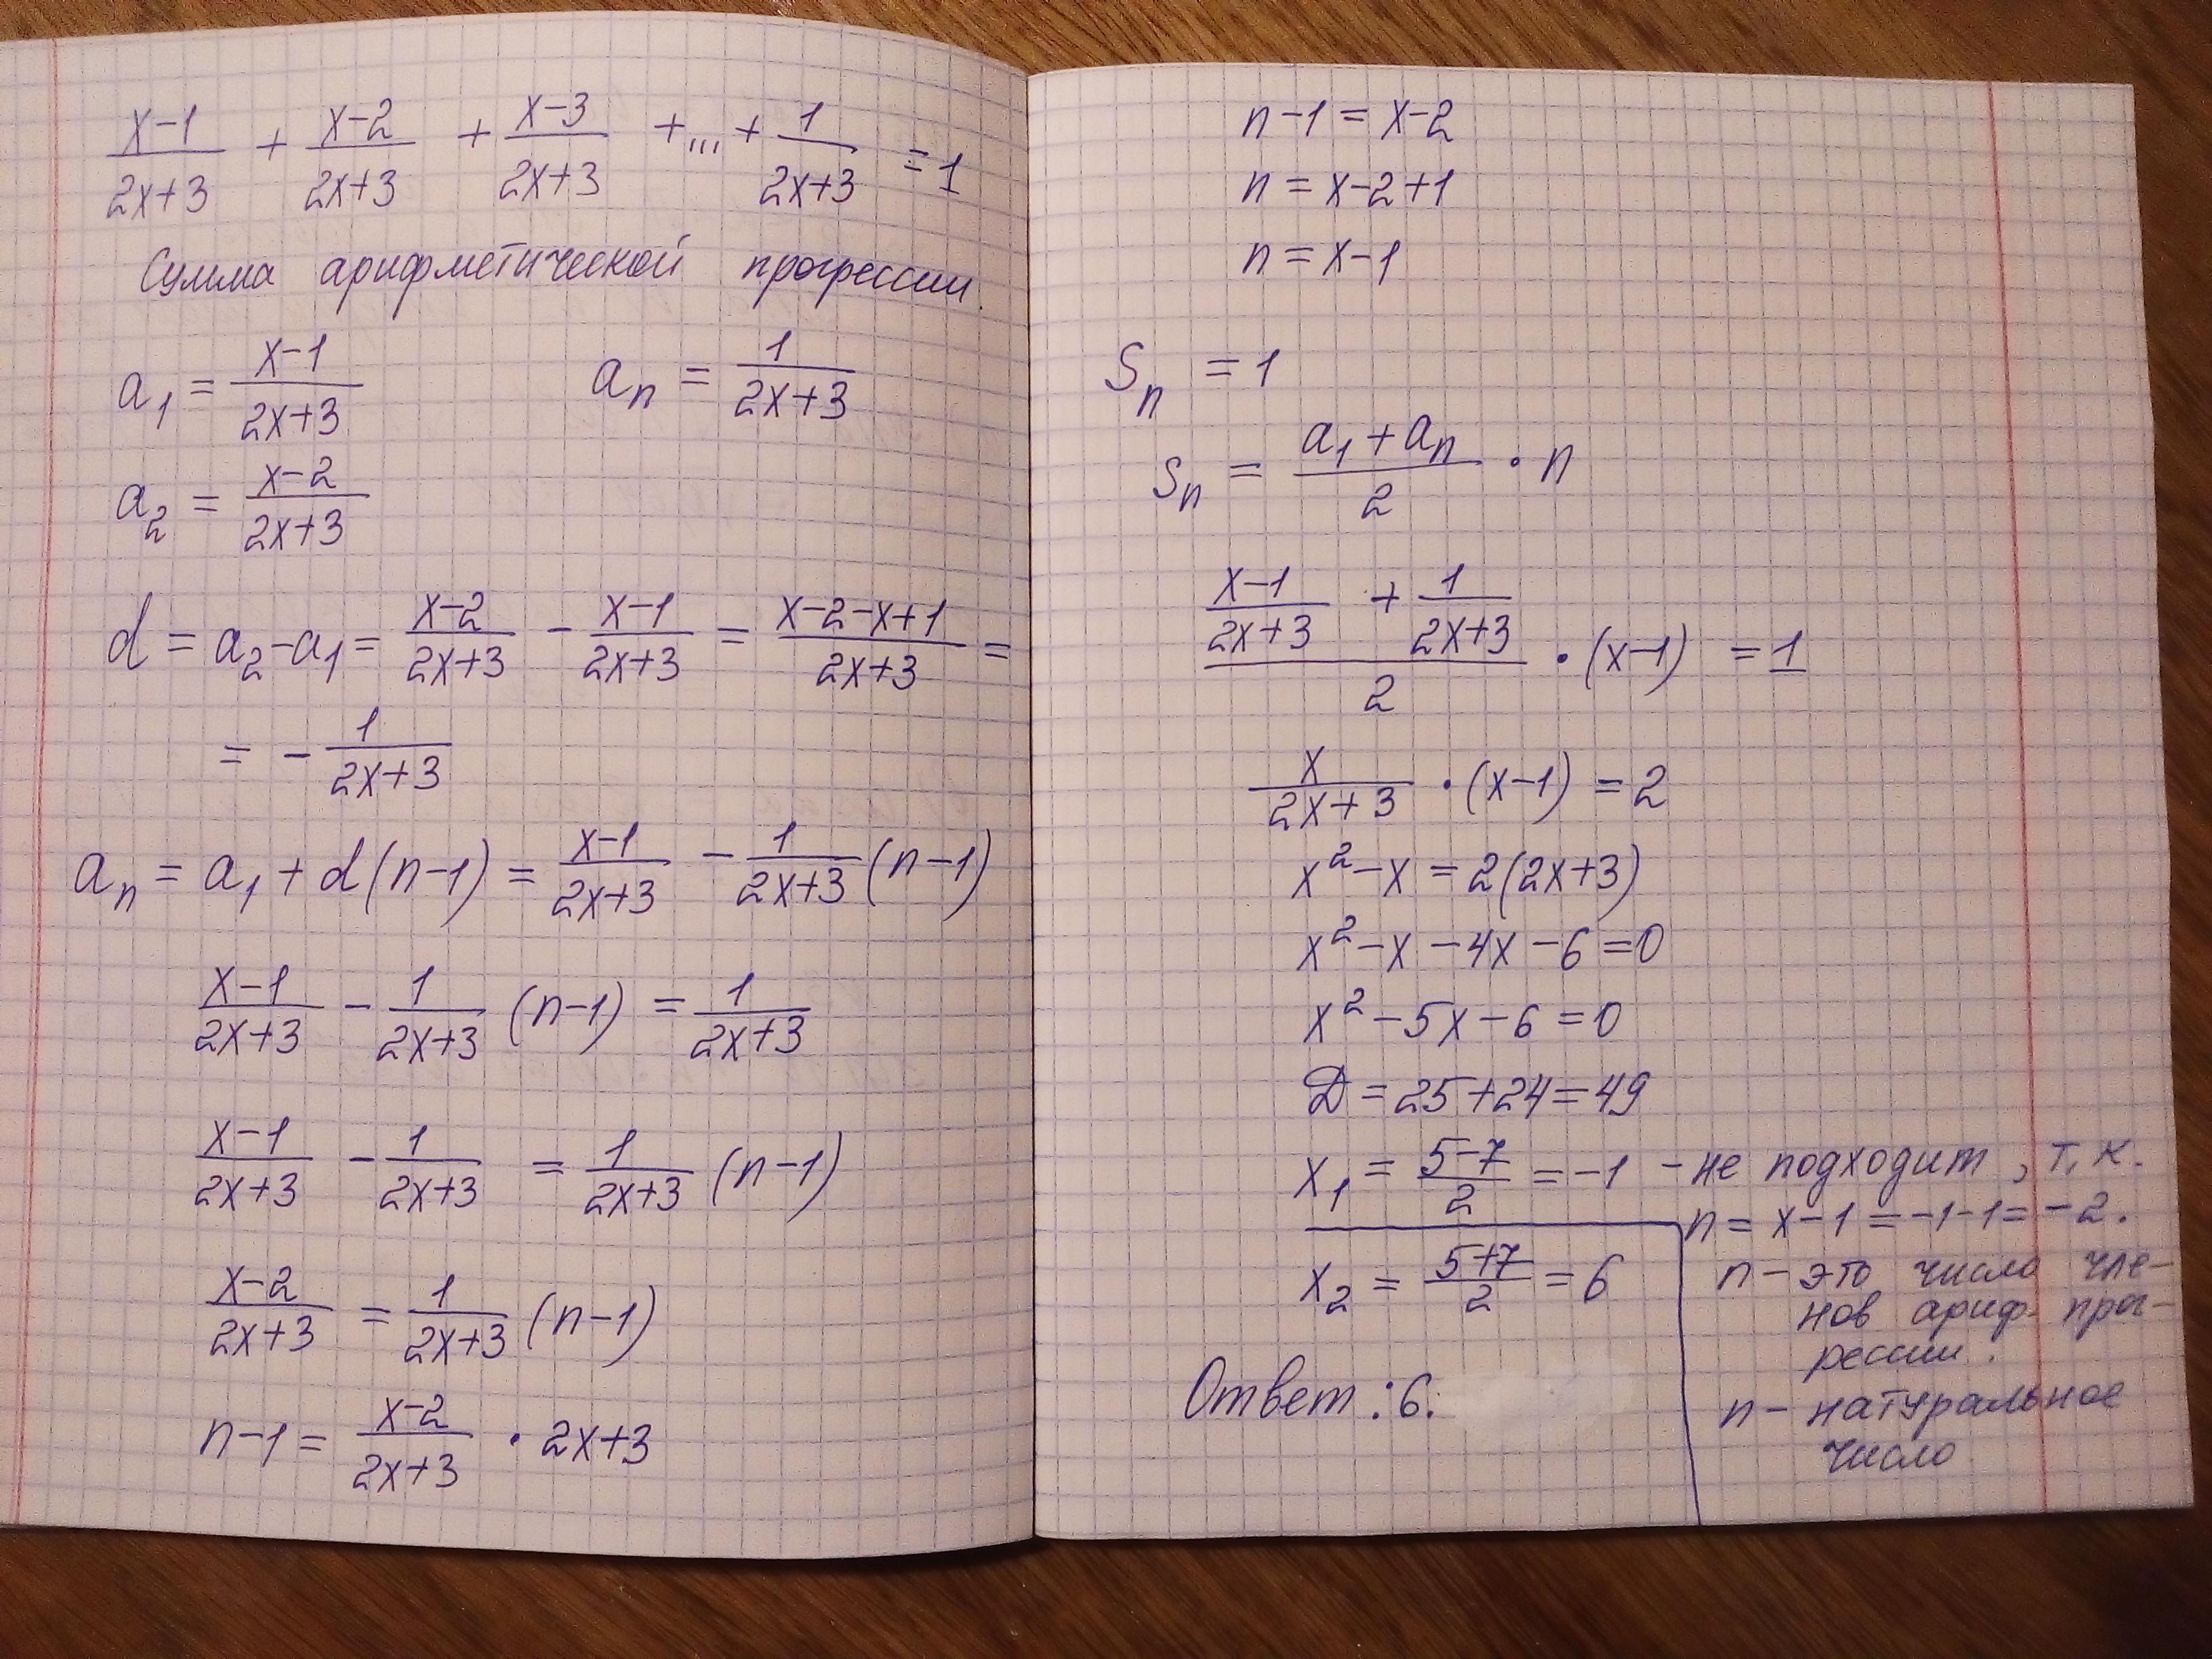 (x-1)/(2x+3) + (x-2)/(2x+3) + (x-3)/(2x+3) + ... + 1/(2x+3) = 1
Сумма арифметической прогрессии.
a₁ = (x-1)/(2x+3)   aₙ = 1/(2x+3)
a₂ = (x-2)/(2x+3)
d = a₂-a₁ = (x-2)/(2x+3) - (x-1)/(2x+3) = (x-2-x+1)/(2x+3) =
= - 1/(2x+3)
aₙ = a₁ + d(n-1) = (x-1)/(2x+3) - 1/(2x+3) (n-1)
(x-1)/(2x+3) - 1/(2x+3) (n-1) = 1/(2x+3)
(x-1)/(2x+3) - 1/(2x+3) = 1/(2x+3) (n-1)
(x-2)/(2x+3) = 1/(2x+3) (n-1)
n-1 = (x-2)/(2x+3) · 2x+3
n-1 = x-2
n = x-2+1
n = x-1
Sₙ = 1
Sₙ = (a₁+aₙ)/2 · n
((x-1)/(2x+3) + 1/(2x+3))/2 · (x-1) = 1
x/(2x+3) · (x-1) = 2
x²-x = 2(2x+3)
x²-x-4x-6=0
x²-5x-6=0
D = 25+24=49
x₁ = (5-7)/2 = -1 - не подходит, т.к.
n = x-1 = -1-1 = -2.
x₂ = (5+7)/2 = 6
n - это число чле-
нов ариф. прог-
рессии.
n - натуральное
число
Ответ: 6.